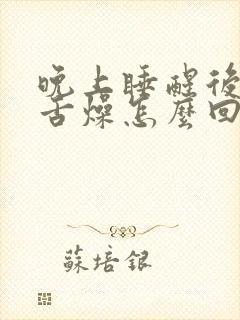 晚上睡醒後
舌燥怎麼回
蘇培銀